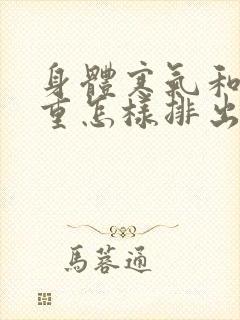 身體寒氣和
重怎樣排出
馬蓉通